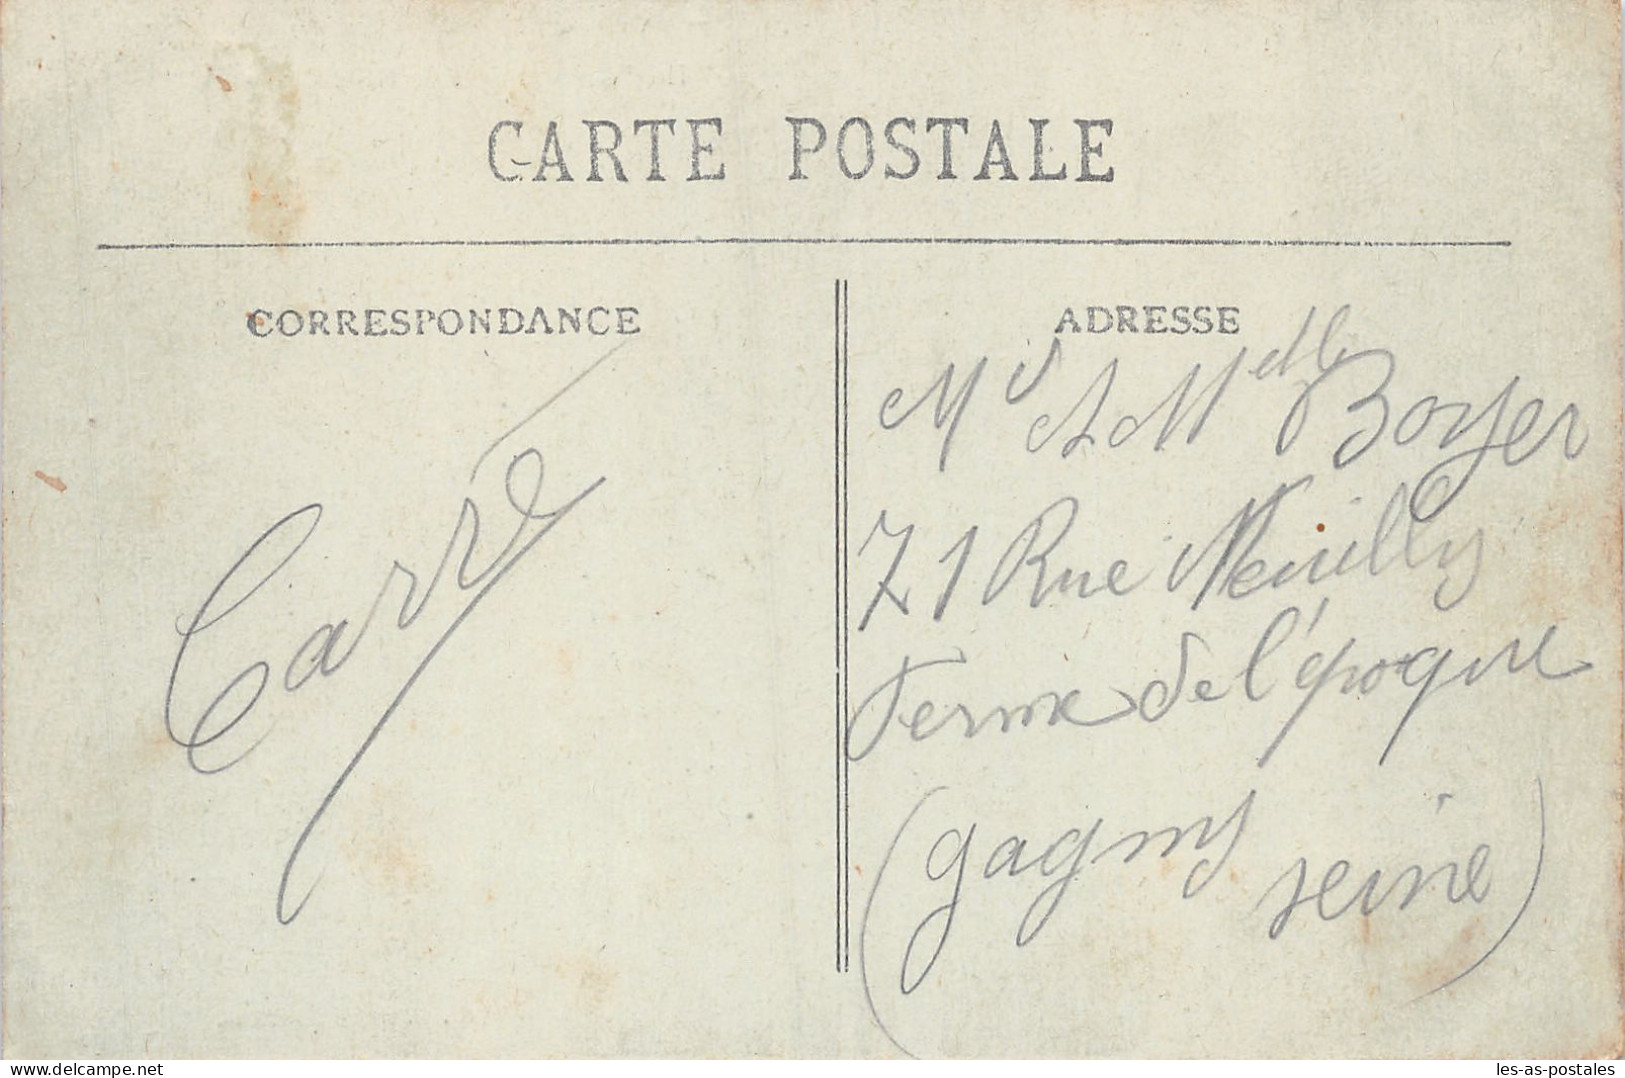 CARTE POSTALE
CORRESPONDANCE
Carré
ADRESSE
Mr & Melle Boyer
71 Rue Neuilly
Ferme de l'époque
(gagny seine)
delcampe.net
les-as-postales